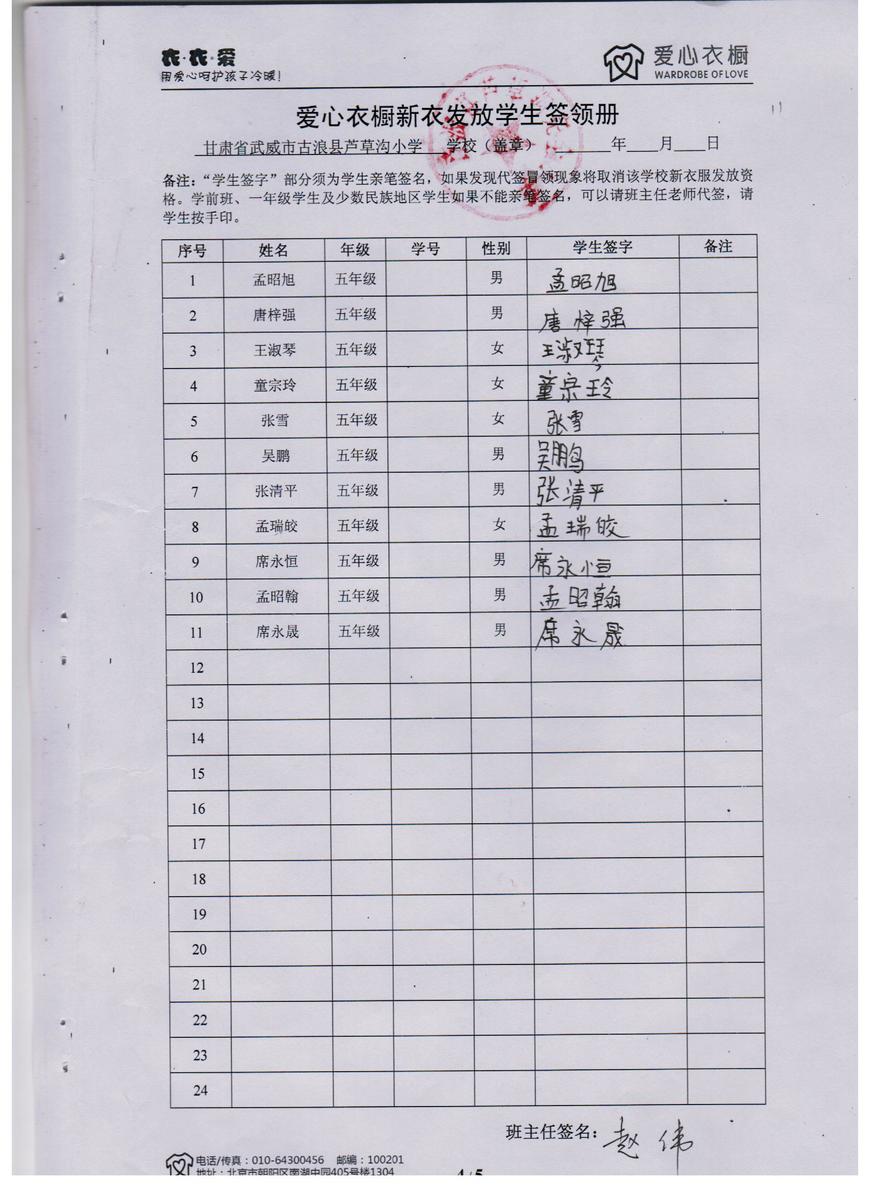 衣·衣·爱
用爱心呵护孩子冷暖!
爱心衣橱
WARDROBE OF LOVE
爱心衣橱新衣发放学生签领册
甘肃省武威市古浪县芦草沟小学 学校（盖章） 年 月 日
备注：“学生签字”部分须为学生亲笔签名，如果发现代签冒领现象将取消该学校新衣服发放资
格。学前班、一年级学生及少数民族地区学生如果不能亲笔签名，可以请班主任老师代签，请
学生按手印。
序号 姓名 年级 学号 性别 学生签字 备注
1 孟昭旭 五年级 男 孟昭旭
2 唐梓强 五年级 男 唐梓强
3 王淑琴 五年级 女 王淑琴
4 童宗玲 五年级 女 童宗玲
5 张雪 五年级 女 张雪
6 吴鹏 五年级 男 吴鹏
7 张清平 五年级 男 张清平
8 孟瑞皎 五年级 女 孟瑞皎
9 席永恒 五年级 男 席永恒
10 孟昭翰 五年级 男 孟昭翰
11 席永晟 五年级 男 席永晟
12
13
14
15
16
17
18
19
20
21
22
23
24
班主任签名：赵伟
电话/传真：010-64300456 邮编：100201
地址：北京市朝阳区南湖中园405号楼1304
4/5